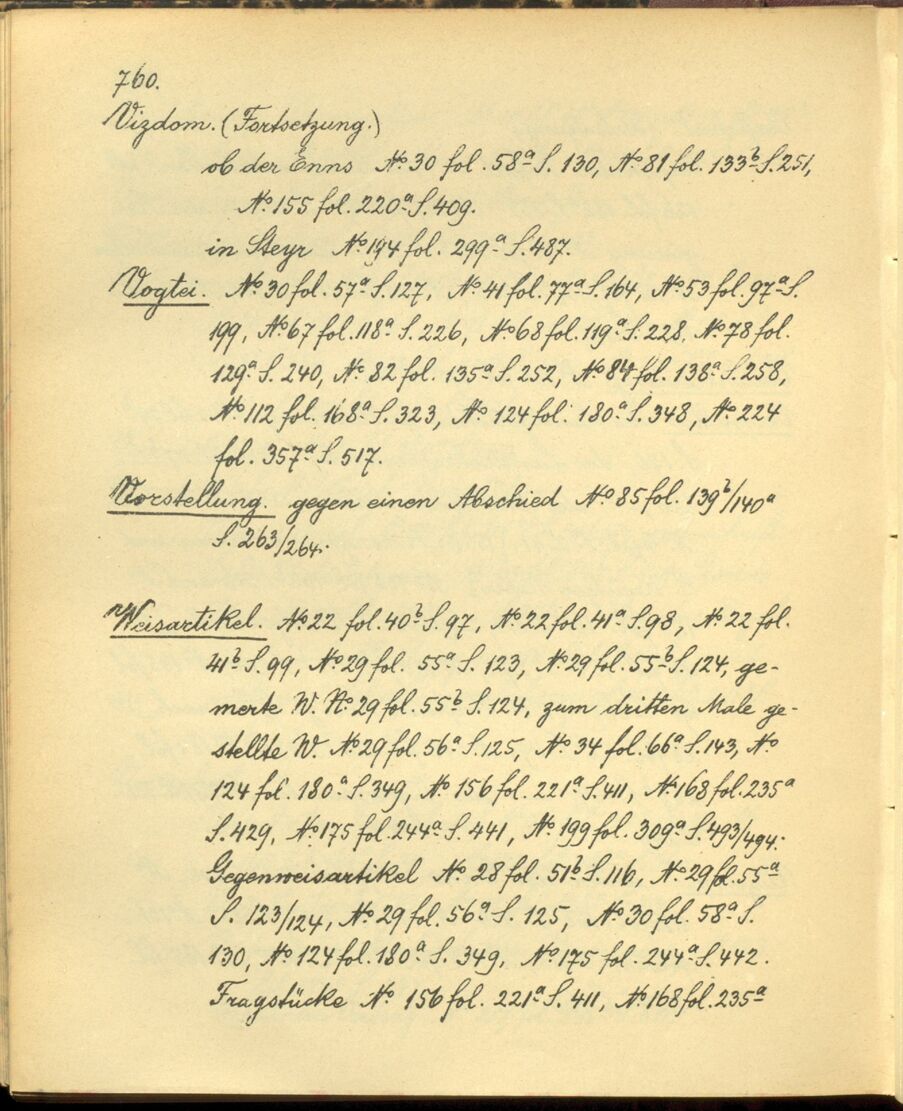 760.
Vizdom. (Fortsetzung.)
ob der Enns No 30 fol. 58a S. 130, No 81 fol. 133b S. 251,
No 155 fol. 220a S. 409.
in Steyr No 194 fol. 299a S. 487.
Vogtei. No 30 fol. 57a S. 127, No 41 fol. 77a S. 164, No 53 fol. 97a S.
199, No 67 fol. 118a S. 226, No 68 fol. 119a S. 228, No 78 fol.
129a S. 240, No 82 fol. 135a S. 252, No 84 fol. 138a S. 258,
No 112 fol. 168a S. 323, No 124 fol. 180a S. 348, No 224
fol. 357a S. 517.
Vorstellung. gegen einen Abschied No 85 fol. 139b/140a
S. 263/264.
Weisartikel. No 22 fol. 40b S. 97, No 22 fol. 41a S. 98, No 22 fol.
41b S. 99, No 29 fol. 55a S. 123, No 29 fol. 55b S. 124, ge-
merte W. No 29 fol. 55b S. 124, zum dritten Male ge-
stellte W. No 29 fol. 56a S. 125, No 34 fol. 66a S. 143, No
124 fol. 180a S. 349, No 156 fol. 221a S. 411, No 168 fol. 235a
S. 429, No 175 fol. 244a S. 441, No 199 fol. 309a S. 493/494.
Gegenweisartikel No 28 fol. 51b S. 116, No 29 fol. 55a
S. 123/124, No 29 fol. 56a S. 125, No 30 fol. 58a S.
130, No 124 fol. 180a S. 349, No 175 fol. 244a S. 442.
Fragstücke No 156 fol. 221a S. 411, No 168 fol. 235a